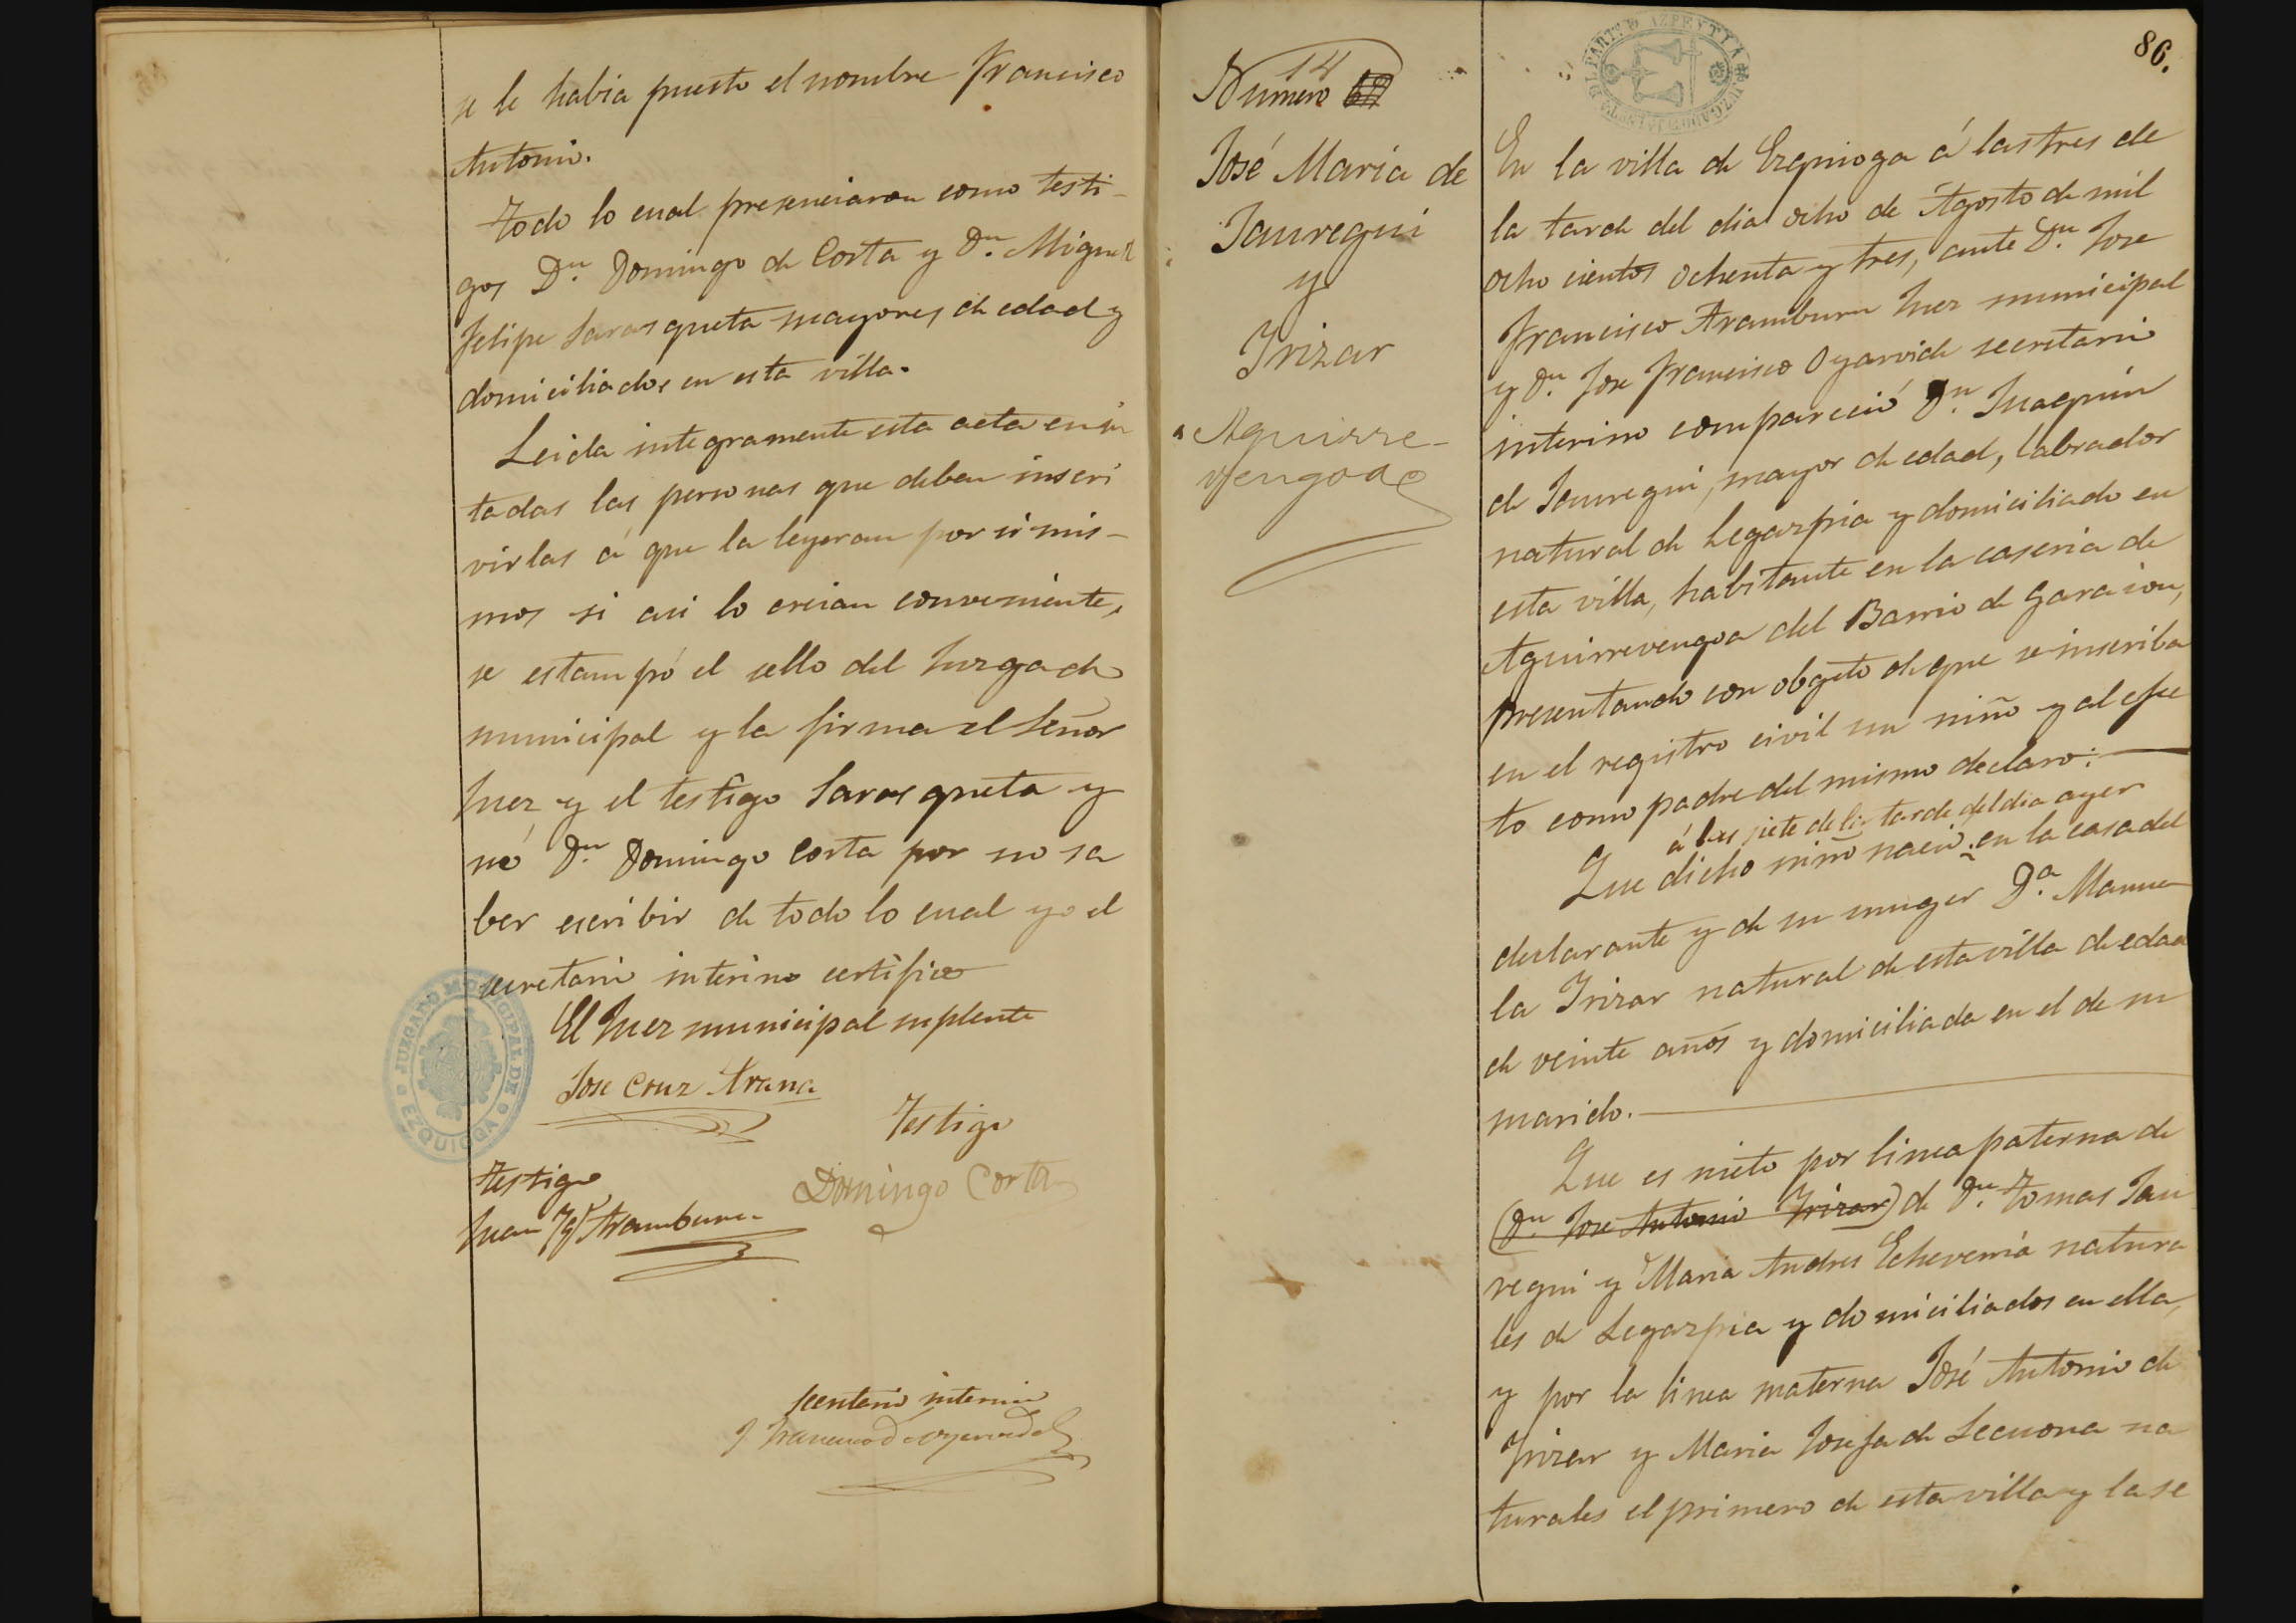 se le habia puesto el nombre Francisco
Antonio.
Todo lo cual presenciaron como testi-
gos Dn. Domingo de Corta y Dn. Miguel
Felipe Sarasqueta mayores de edad y
domiciliados en esta villa.
Leida integramente esta acta e
tadas las personas que deben inscri
virlas á que la leyeran por si mis-
mos si asi lo creian conveniente,
se estampó el sello del Juzgado
municipal y la firma el Señor
Juez y el testigo Sarasqueta y
no Dn. Domingo Corta por no sa
ber escribir de todo lo cual yo el
secretario interino certifico
El Juez municipal suplente
Jose Cruz Arana
Testigo
Domingo Corta
Testigo
Juan Aramburu
secretario interino
JUZGADO MUNICIPAL DE
EZQUIOGA
86.
PARTº DE AZPEITIA
JUZGADO
14
Número
José Maria de
Jauregui
y
Irizar
Aguirre-
vengoa
En la villa de Ezquioga á las tres de
la tarde del dia ocho de Agosto de mil
ocho cientos ochenta y tres, ante Dn. Jose
Francisco Aramburu Juez municipal
y Dn. Jose Francisco Oyarvide secretario
interino compareció Dn. Juaquin
de Jauregui, mayor de edad, labrador
natural de Legazpia y domiciliado en
esta villa, habitante en la caseria de
Aguirrevengoa del Barrio de Garaion,
presentando con obgeto de que se inscriba
en el registro civil un niño y al efec
to como padre del mismo declaro:
á las siete de la tarde del dia ayer
Que dicho niño nació en la casa del
declarante y de su muger Da. Manue
la Irizar natural de esta villa de edad
de veinte años y domiciliada en el de su
marido.
Que es nieto por linea paterna de
(Dn. Jose Antonio Irizar) de Dn. Tomas Jau
regui y Maria Andres Echeverria natura
les de Legazpia y domiciliados en ella,
y por la linea materna José Antonio de
Irizar y Maria Josefa de Lecuona na
turales el primero de esta villa y la se